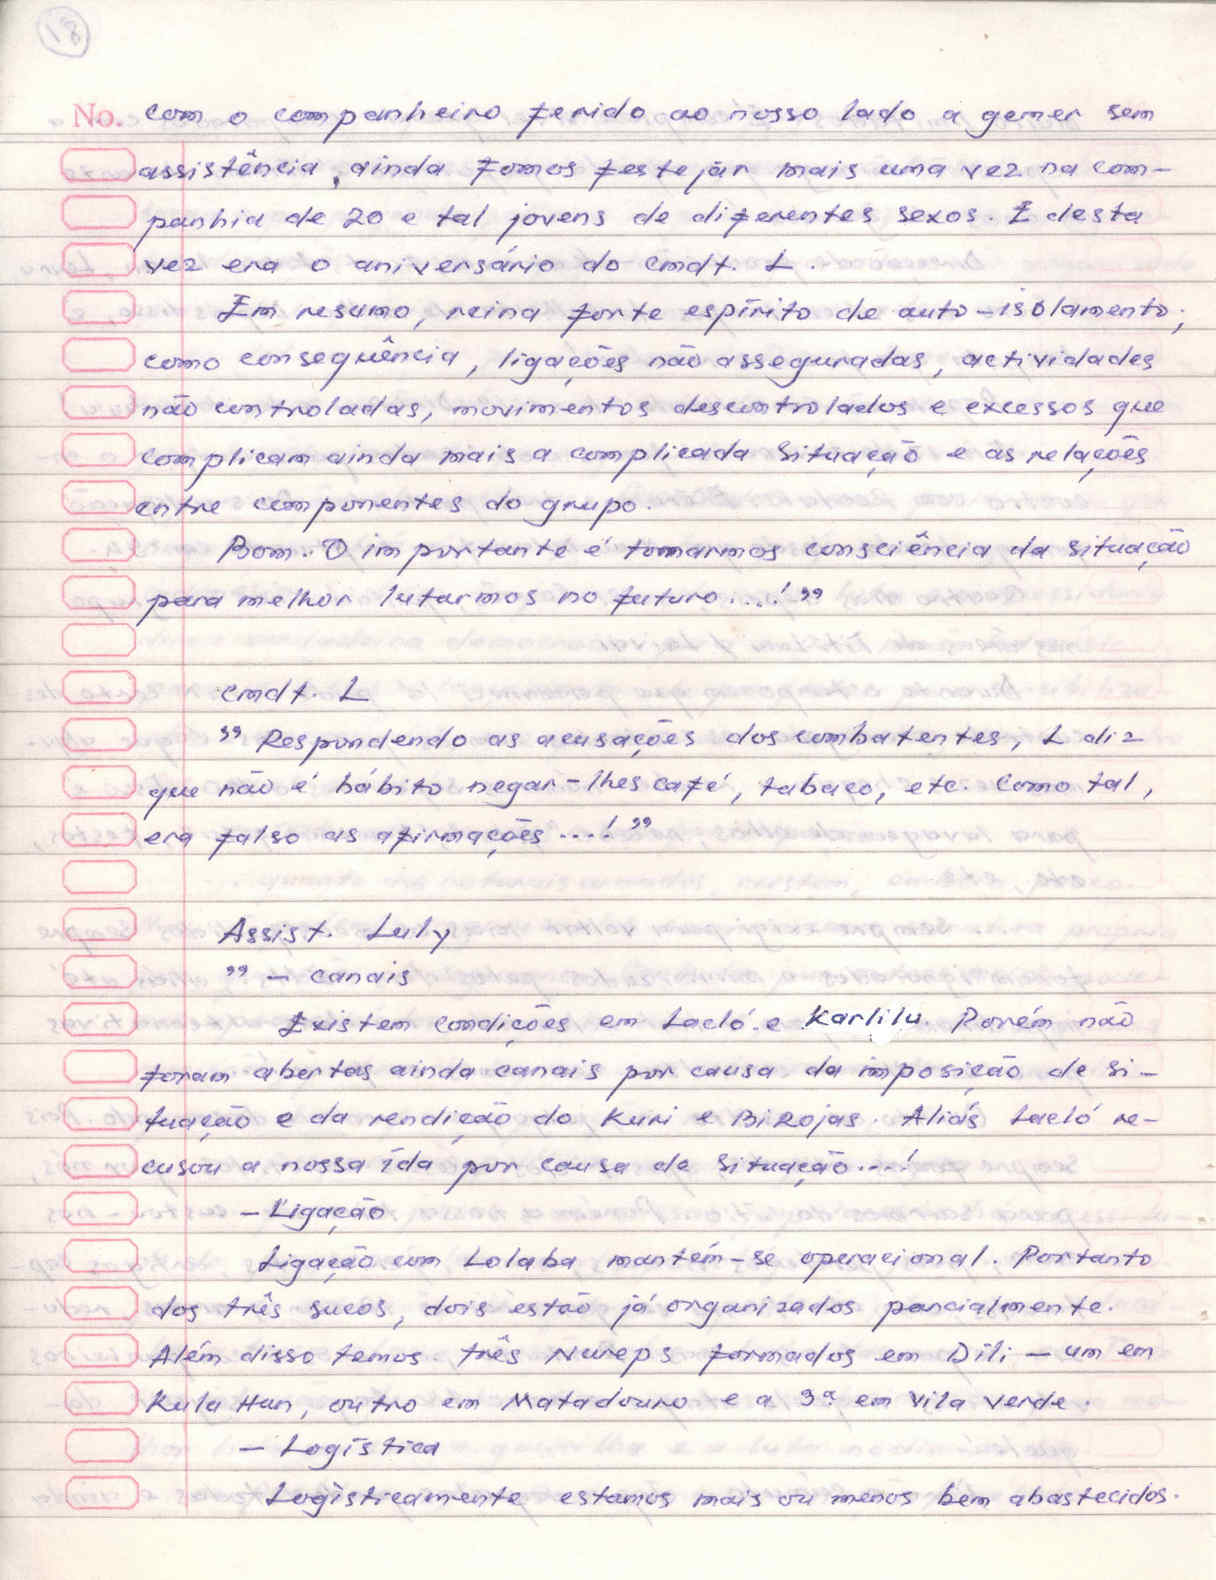 81
No. com o companheiro ferido ao nosso lado a gemer sem
assistência, ainda fomos festejar mais uma vez na com-
panhia de 20 e tal jovens de diferentes sexos. E desta
vez era o aniversário do cmdt. L.
Em resumo, reina forte espírito de auto-isolamento;
como consequência, ligações não asseguradas, actividades
não controladas, movimentos descontrolados e excessos que
complicam ainda mais a complicada situação e as relações
entre componentes do grupo.
Bom.. O importante é tomarmos consciência da situação
para melhor lutarmos no futuro....! ”
cmdt. L
” Respondendo as acusações dos combatentes, L diz
que não é hábito negar-lhes café, tabaco, etc. Como tal,
era falso as afirmações ....! ”
Assist. Luly
” - canais
Existem condições em Lacló e Karlilu. Porém não
foram abertas ainda canais por causa da imposição de si-
tuação e da rendição do Kuri e Birojas. Aliás Lacló re-
cusou a nossa ída por causa de situação....!
- Ligação
Ligação com Lolaba mantém-se operacional. Portanto
dos três sucos, dois estão já organizados parcialmente.
Além disso temos três Nureps formados em Díli - um em
Kulu Hun, outro em Matadouro e a 3ª em Vila Verde.
- Logística
Logìsticamente estamos mais ou menos bem abastecidos.